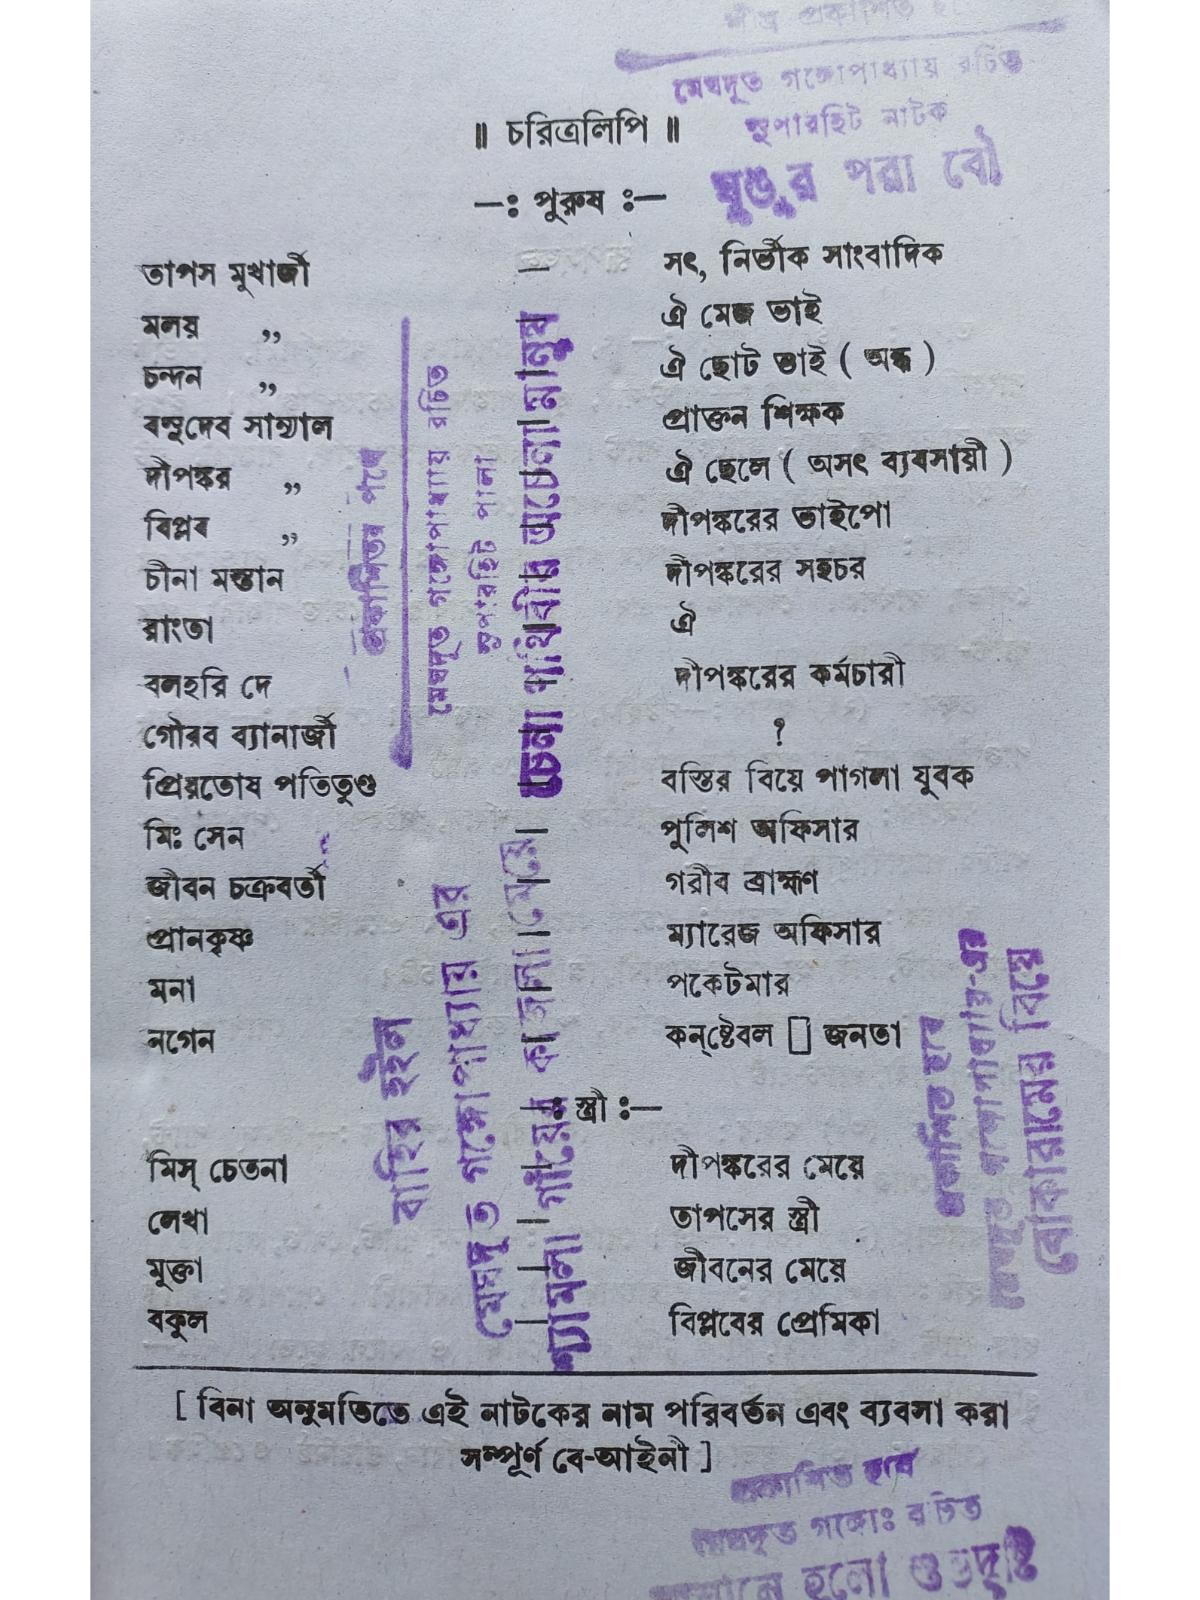 শীঘ্র প্রকাশিত
মেঘদূত গঙ্গোপাধ্যায় রচিত
সুপারহিট নাটক
ঘুঙুর পরা বৌ
॥ চরিত্রলিপি ॥
—: পুরুষ :—
তাপস মুখার্জী — সৎ, নির্ভীক সাংবাদিক
মলয় ,, ঐ মেজ ভাই
চন্দন ,, ঐ ছোট ভাই ( অন্ধ )
বসুদেব সান্যাল প্রাক্তন শিক্ষক
দীপঙ্কর ,, ঐ ছেলে ( অসৎ ব্যবসায়ী )
বিপ্লব ,, দীপঙ্করের ভাইপো
চীনা মস্তান দীপঙ্করের সহচর
রাংতা ঐ
বলহরি দে দীপঙ্করের কর্মচারী
গৌরব ব্যানার্জী ?
প্রিয়তোষ পতিতুণ্ড বস্তির বিয়ে পাগলা যুবক
মিঃ সেন — পুলিশ অফিসার
জীবন চক্রবর্তী — গরীব ব্রাহ্মণ
প্রানকৃষ্ণ — ম্যারেজ অফিসার
মনা — পকেটমার
নগেন — কন্ষ্টেবল ▯ জনতা
—: স্ত্রী :—
মিস্ চেতনা — দীপঙ্করের মেয়ে
লেখা — তাপসের স্ত্রী
মুক্তা — জীবনের মেয়ে
বকুল — বিপ্লবের প্রেমিকা
[ বিনা অনুমতিতে এই নাটকের নাম পরিবর্তন এবং ব্যবসা করা
সম্পূর্ণ বে-আইনী ]
প্রকাশিতর পথে
মেঘদূত গঙ্গোপাধ্যায় রচিত
সুপারহিট পালা
চেনা পৃথিবীর অচেনা মানুষ
বাহির হইল
মেঘদূত গঙ্গোপাধ্যায় এর
শ্যামলা গাঁয়ের কাজলা মেয়ে
প্রকাশিত হবে
মেঘদূত গঙ্গোপাধ্যায়-এর
বোকারামের বিয়ে
প্রকাশিত হবে
মেঘদূত গঙ্গোঃ রচিত
হলো শুভদৃষ্টি